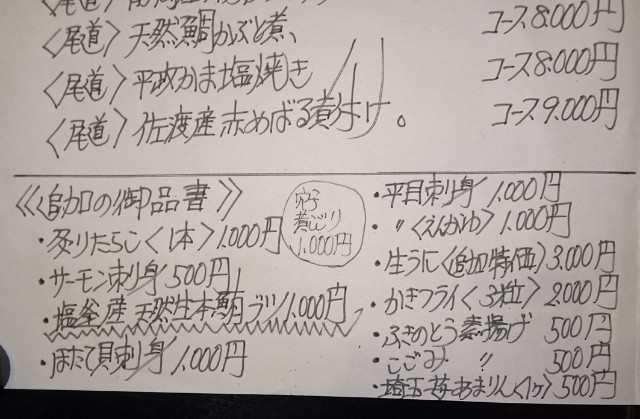 〈尾道〉天然鯛かぶと煮、 コース8.000円
〈尾道〉平政かま塩焼き コース8.000円
〈尾道〉佐渡産赤めばる煮付け。 コース9.000円
《追加の御品書》
・炙りたらこ〈1本〉1.000円
・サーモン刺り身500円
・塩釜産天然生本鮪ブツ1.000円
・ほたて貝刺り身1.000円
煮こごり
1.000円
・平目刺り身1.000円
・〃〈えんがわ〉1.000円
・生うに〈追加特価〉3.000円
・かきフライ〈3粒〉2.000円
・ふきのとう素揚げ 500円
・こごみ 〃 500円
・埼玉苺あまりん〈1ケ〉500円